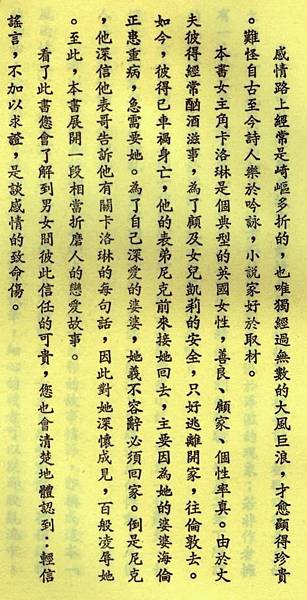 感情路上經常是崎嶇多折的，也唯獨經過無數的大風巨浪，才愈顯得珍貴
。難怪自古至今詩人樂於吟詠，小說家好於取材。
本書女主角卡洛琳是個典型的英國女性，善良、顧家、個性率真。由於丈
夫彼得經常酗酒滋事，為了顧及女兒凱莉的安全，只好逃離開家，往倫敦去。
如今，彼得已車禍身亡，他的表弟尼克前來接她回去，主要因為她的婆婆海倫
正患重病，急需要她。為了自己深愛的婆婆，她義不容辭必須回家。倒是尼克
，他深信他表哥告訴他有關卡洛琳的每句話，因此對她深懷成見，百般凌辱她
。至此，本書展開一段相當折磨人的戀愛故事。
看了此書您會了解到男女間彼此信任的可貴，您也會清楚地體認到：輕信
謠言，不加以求證，是談感情的致命傷。